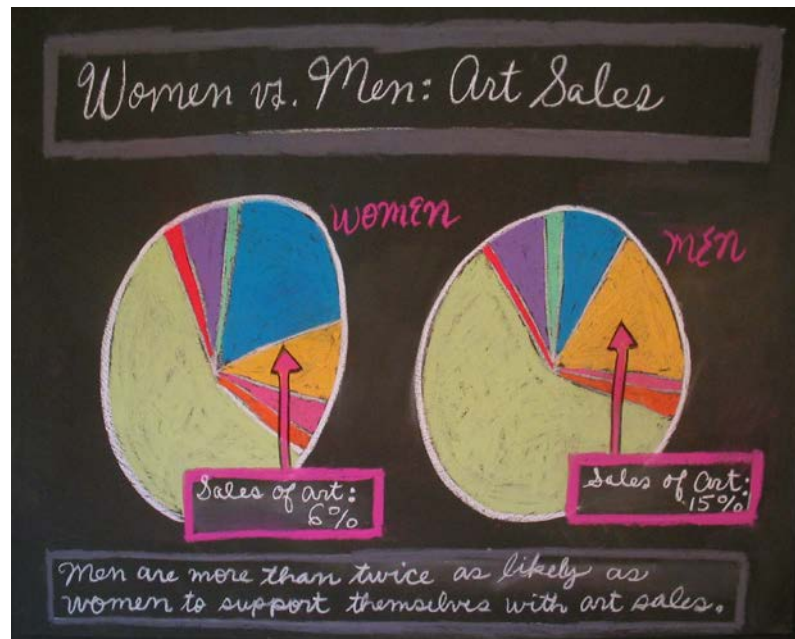 Women vs. Men: Art Sales
WOMEN
MEN
Sales of art:
6%
Sales of art:
15%
Men are more than twice as likely as
women to support themselves with art sales.